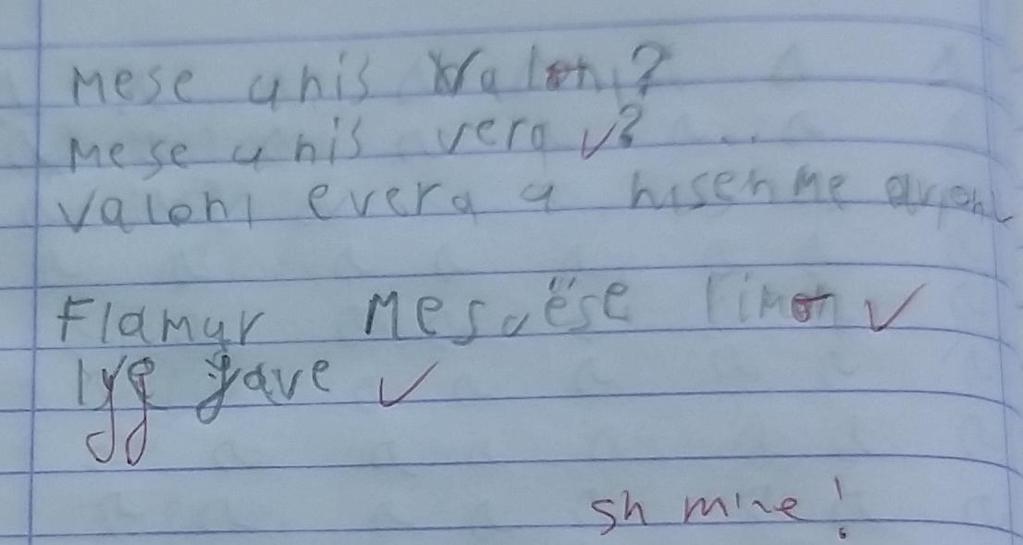 Mese u nis Valon?
Mese u nis vera?
Valoni evera u nisen me
Flamur Mesuëse limon
lyg gave
sh mire!